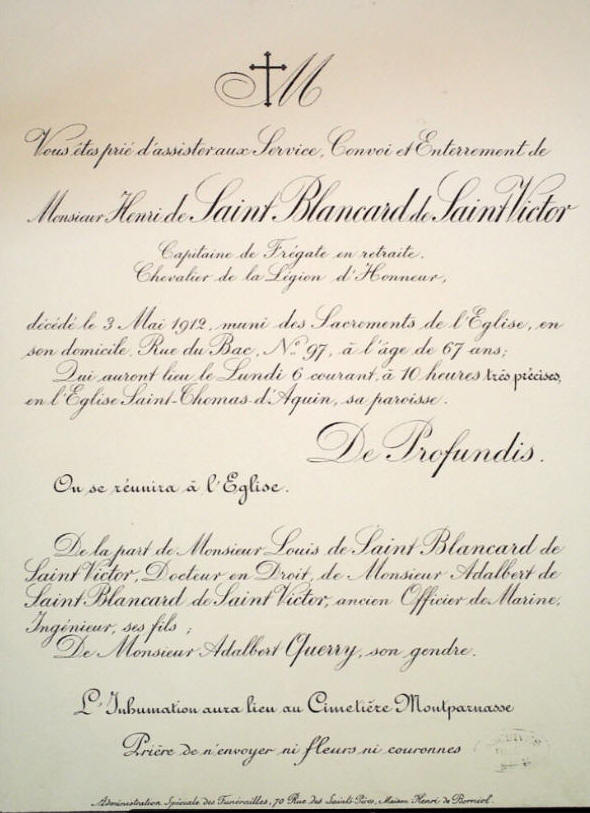 M
Vous êtes prié d'assister aux Service, Convoi et Enterrement de
Monsieur Henri de Saint Blancard de Saint Victor
Capitaine de Frégate en retraite.
Chevalier de la Légion d'Honneur,
décédé le 3 Mai 1912, muni des Sacrements de l'Eglise, en
son domicile, Rue du Bac, No. 97, à l'âge de 67 ans;
Qui auront lieu le Lundi 6 courant, à 10 heures très précises,
en l'Eglise Saint-Thomas-d'Aquin, sa paroisse.
De Profundis.
On se réunira à l'Eglise.
De la part de Monsieur Louis de Saint Blancard de
Saint Victor, Docteur en Droit, de Monsieur Adalbert de
Saint Blancard de Saint Victor, ancien Officier de Marine,
Ingénieur, ses fils;
De Monsieur Adalbert Querry, son gendre.
L'Inhumation aura lieu au Cimetière Montparnasse
Prière de n'envoyer ni fleurs ni couronnes
Administration Spéciale des Funérailles, 70 Rue des Saints-Pères, Maison Henri de Borniol.